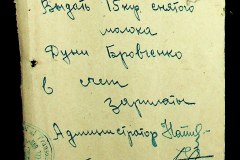 Выдать 15 кгр. снятого
молока
Дуни Бровченко
в счет
зарплаты
Администратор